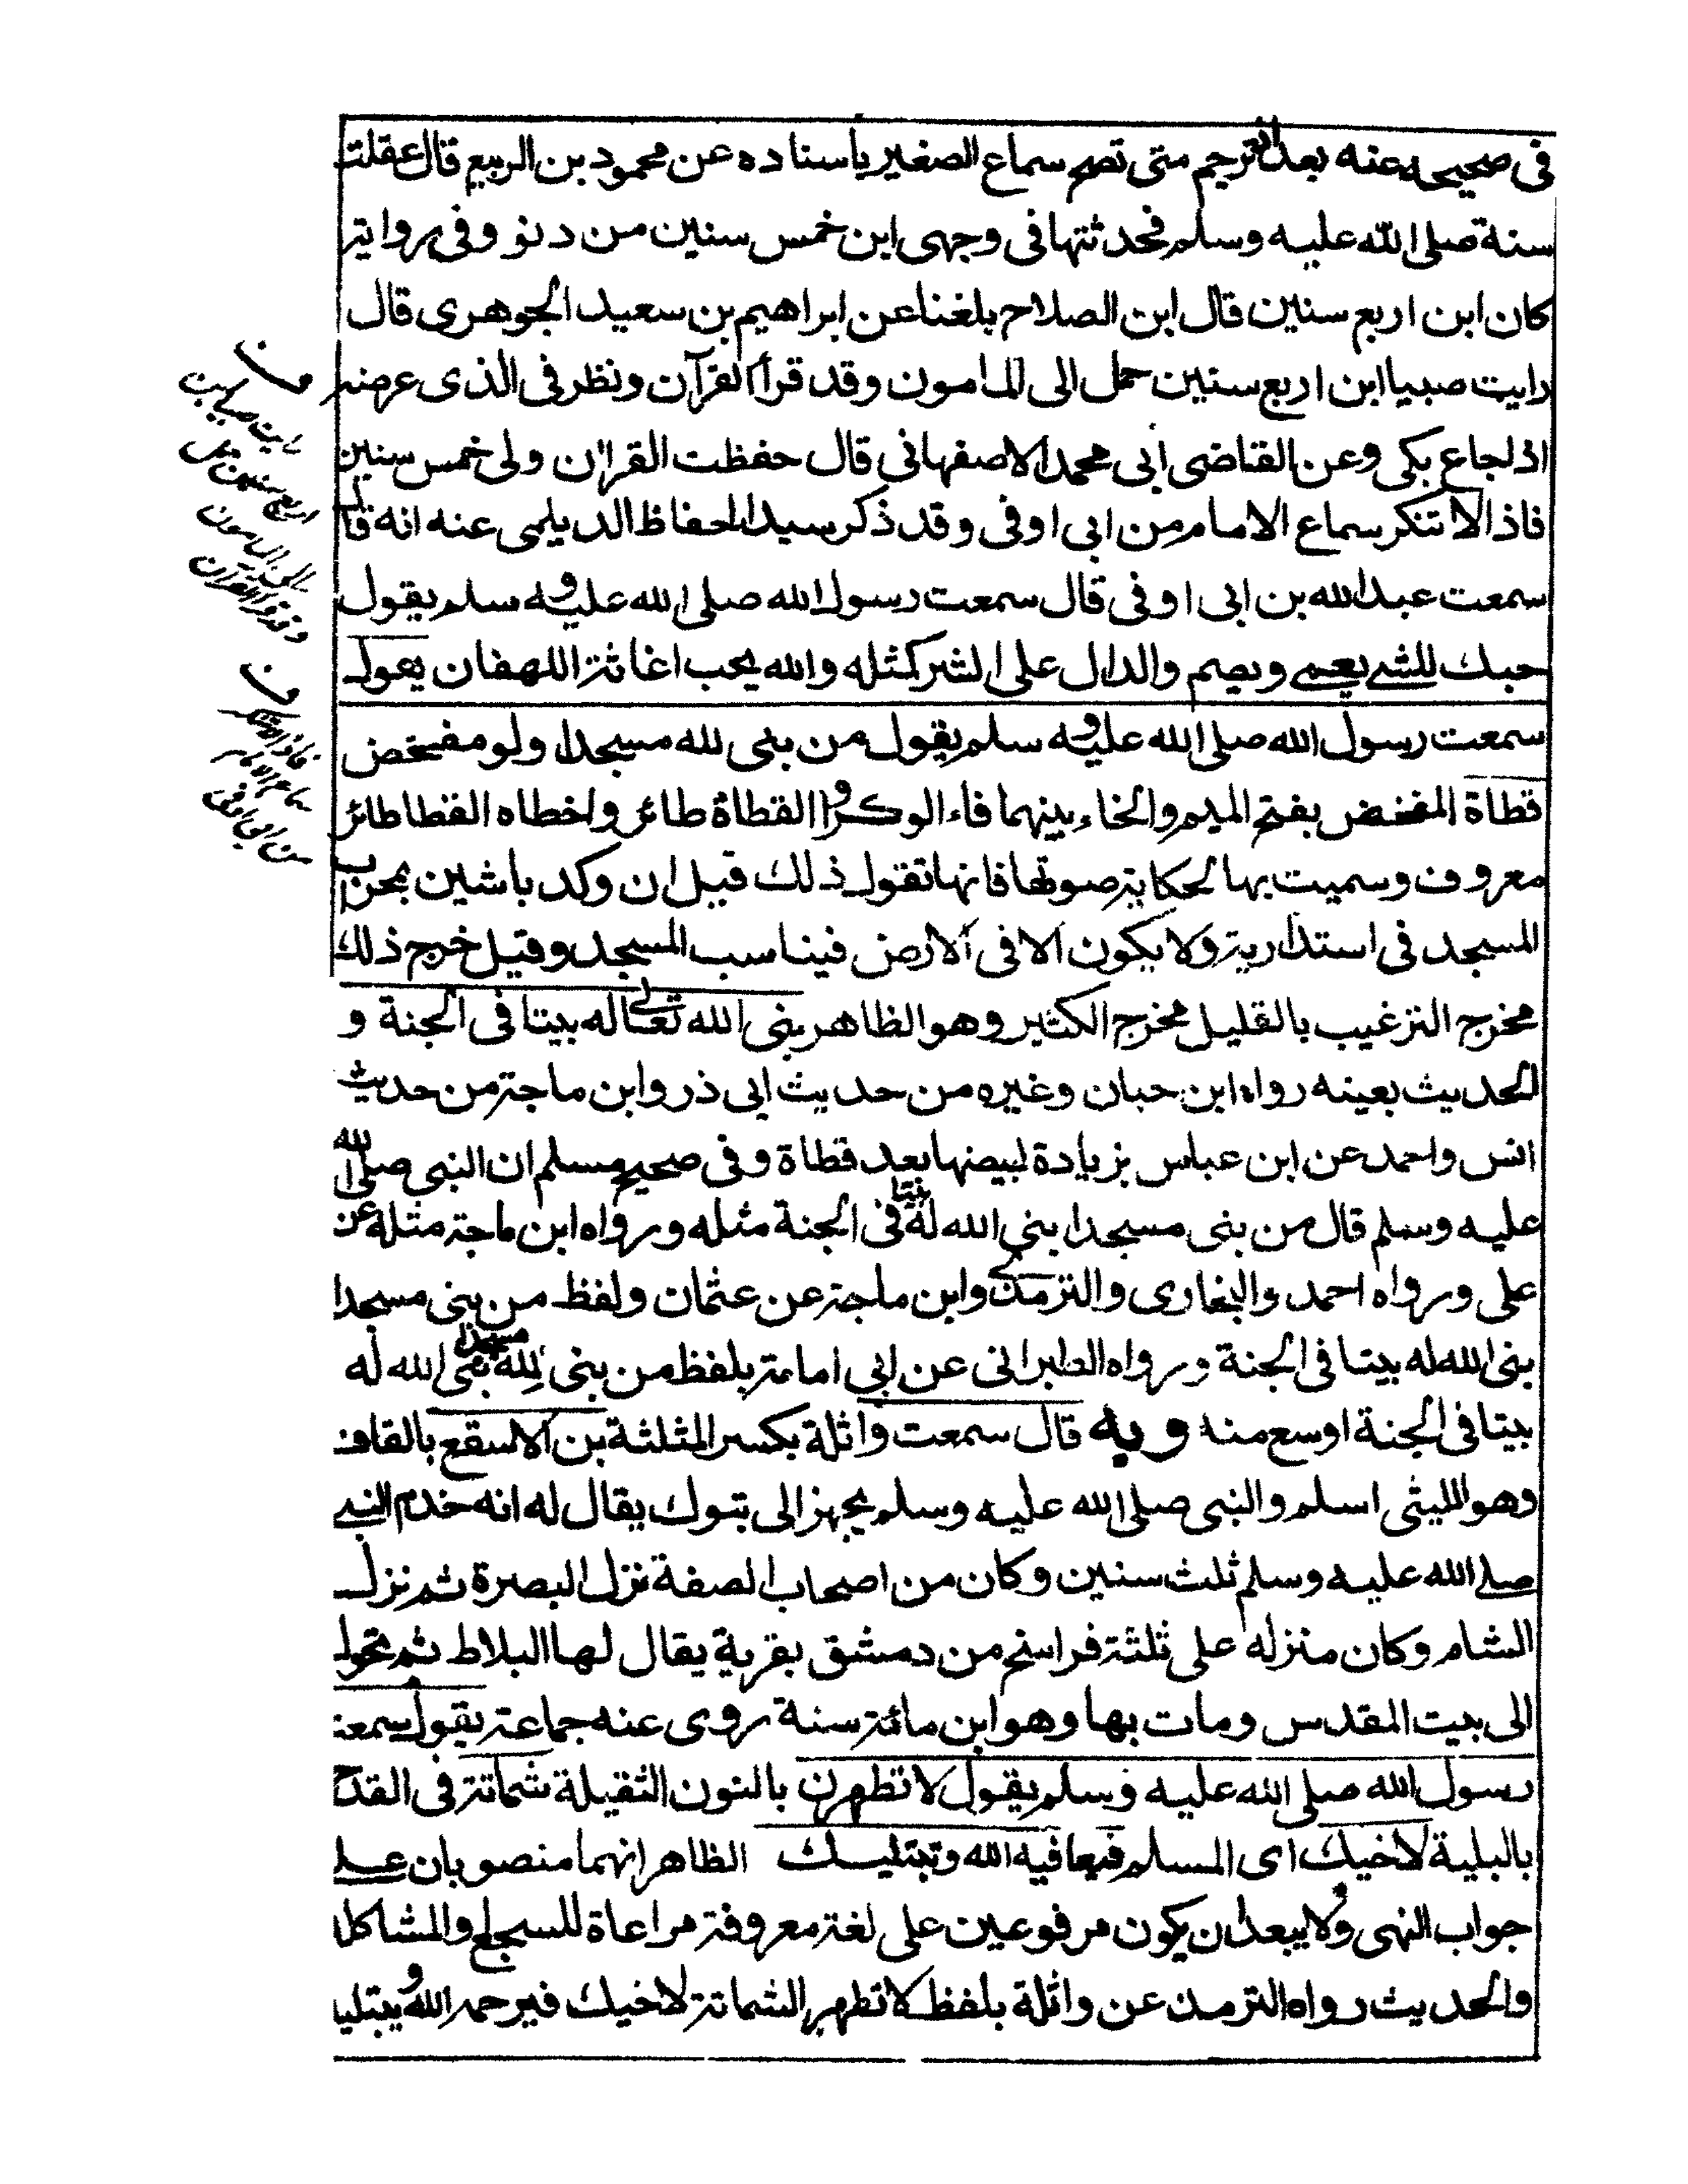 فى صحيحه عنه بعد ان ترجم متى تصح سماع الصغير باسناده عن محمود بن الربيع قال عقلت
سنة صلى الله عليه وسلم فحدثتها فى وجهى ابن خمس سنين من دنو وفى رواية
كان ابن اربع سنين قال ابن الصلاح بلغنا عن ابراهيم بن سعيد الجوهرى قال
رايت صبيا ابن اربع سنين حمل الى المامون وقد قرأ القرآن ونظر فى الذى عرضه
اذ الجاع بكى وعن القاضى ابى محمد الاصفهانى قال حفظت القران ولى خمس سنين
فاذا لا تنكر سماع الامام من ابى اوفى وقد ذكر سيد الحفاظ الديلمى عنه انه قال
سمعت عبدالله بن ابى اوفى قال سمعت رسول الله صلى الله عليه و سلم يقول
حبك للشىء يعمى ويصم والدال على الشر كمثله والله يحب اغاثة اللهفان يقول
سمعت رسول الله صلى الله عليه و سلم يقول من بنى لله مسجدا ولو مفحض
قطاة المفخض بفتح الميم والخاء بينهما فاء الوكر و القطاة طائر واخطاه القطا طائر
معروف وسميت بها لحكاية صوتها فانها تقول ذلك قيل ان وكد باشين بحرب
المسجد فى استدارية ولا يكون الا فى الارض فيناسب المسجد وقيل خرج ذلك
مخرج الترغيب بالقليل مخرج الكثير وهو الظاهر بنى الله تعالى له بيتا فى الجنة و
الحديث بعينه رواه ابن حبان وغيره من حديث ابى ذر وابن ماجة من حديث
انس واحمد عن ابن عباس بزيادة لبيضها بعد قطاة وفى صحيح مسلم ان النبى صلى الله
عليه وسلم قال من بنى مسجدا بنى الله له بيتا فى الجنة مثله ورواه ابن ماجة مثله عن
على ورواه احمد والبخارى والترمذى وابن ماجة عن عثمان ولفظ من بنى مسجدا
بنى الله له بيتا فى الجنة ورواه الطبرانى عن ابى امامة بلفظ من بنى لله مسجدا بنى الله له
بيتا فى الجنة اوسع منه وبه قال سمعت واثلة بكسر المثلثة بن الاسقع بالقاف
وهو الليثى اسلم والنبى صلى الله عليه وسلم يجهز الى تبوك يقال له انه خدم النبى
صلى الله عليه وسلم ثلث سنين وكان من اصحاب الصفة نزل البصرة ثم نزل
الشام وكان منزله على ثلثة فراسخ من دمشق بقرية يقال لها البلاط ثم تحول
الى بيت المقدس ومات بها وهو ابن مائة سنة روى عنه جماعة يقول سمعت
رسول الله صلى الله عليه وسلم يقول لا تظهرن بالنون الثقيلة شماتة فى القدح
بالبلية لاخيك اى المسلم فيعافيه الله ويبتليك الظاهر انهما منصوبان على
جواب النهى ولا يبعد ان يكون مرفوعين على لغة معروفة مراعاة للسجع والمشاكل
والحديث رواه الترمذ عن واثلة بلفظ لا تظهر الشماتة لاخيك فيرحمه الله و يبتليك
ن
رايت صبيا ابن
اربع سنين حمل
الى المامون
وقد قرأ القرآن
ن
فاذا لا تنكر
سماع الامام
من ابى اوفى